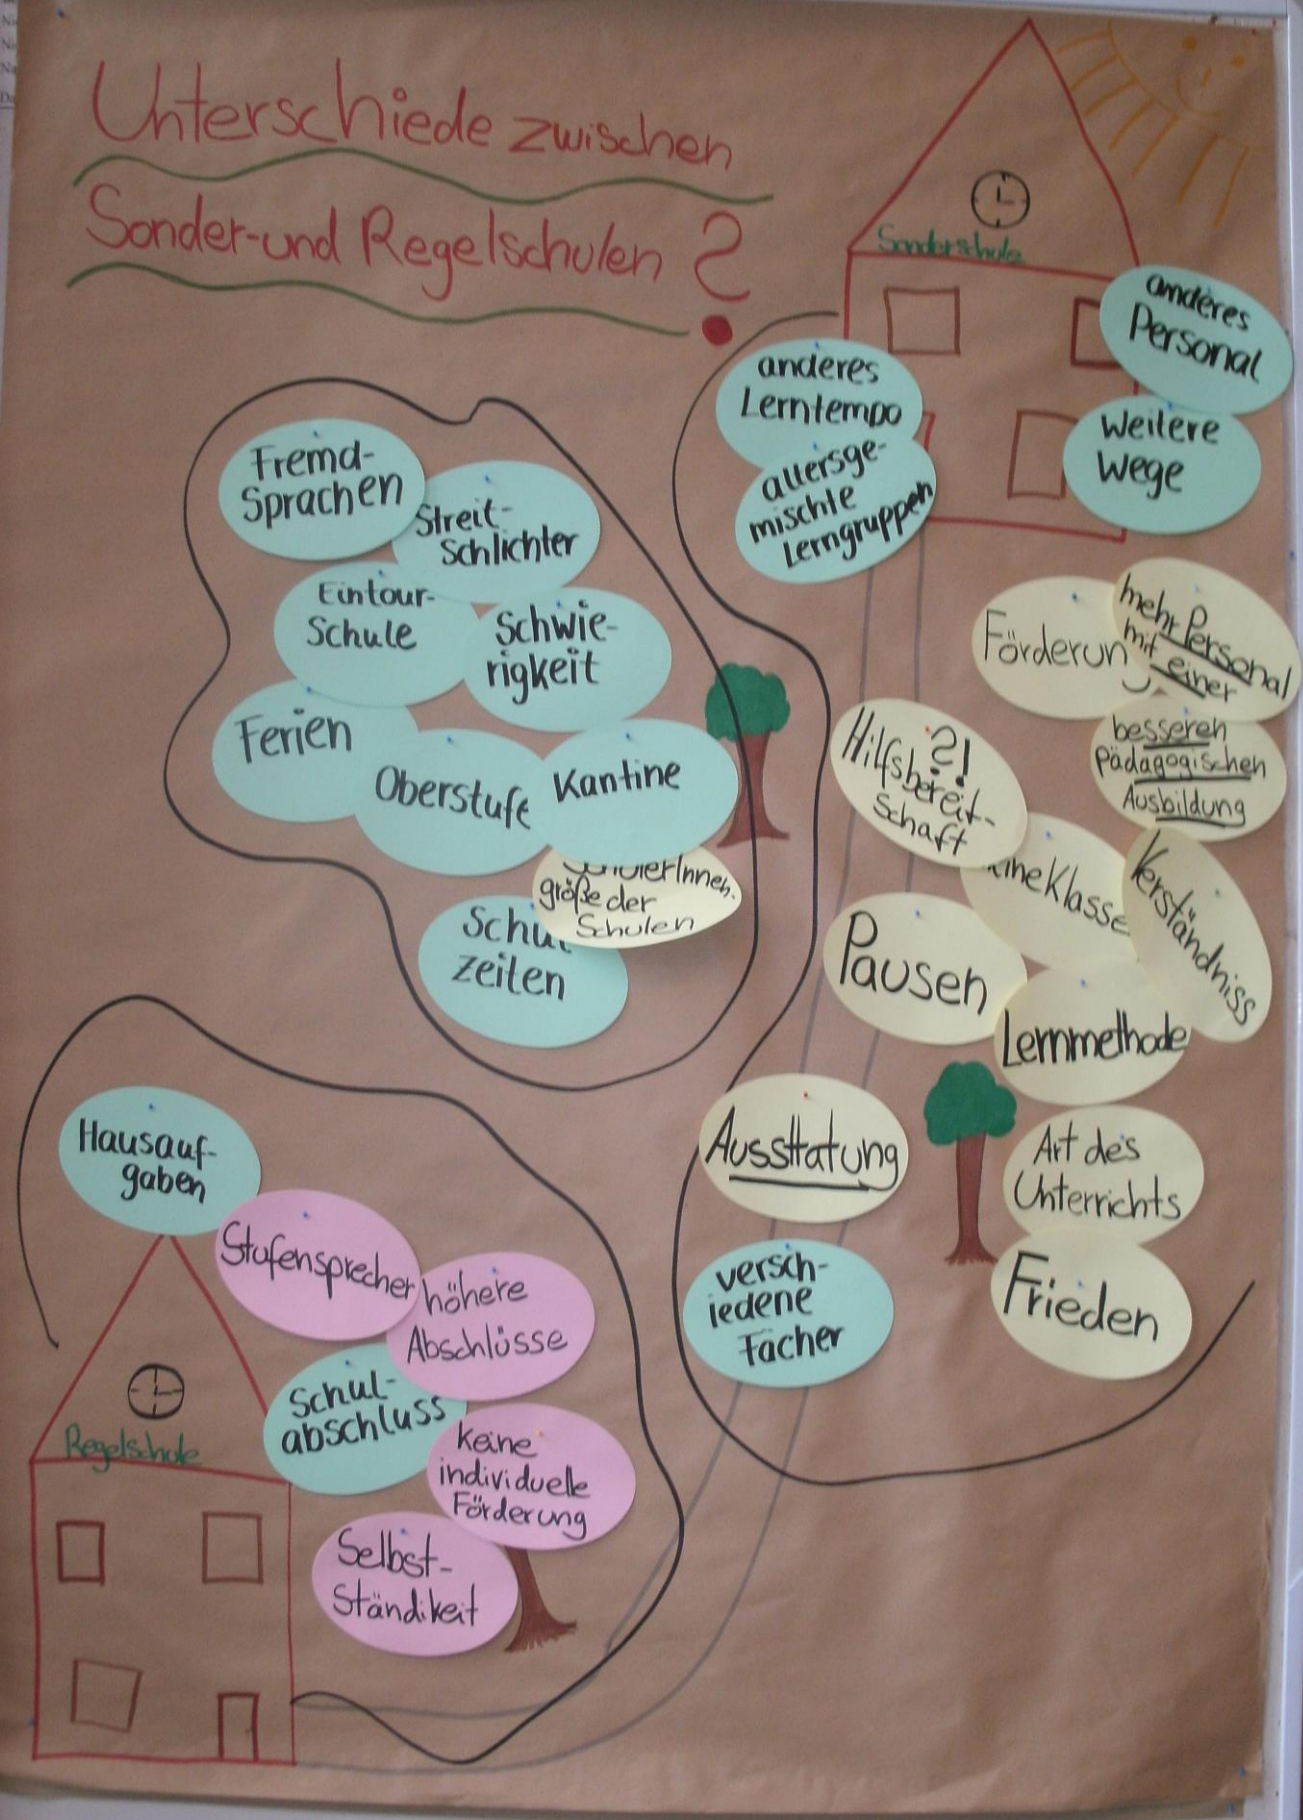 Unterschiede zwischen
Sonder-und Regelschulen ?
Sonderschule
anderes
Personal
anderes
Lerntempo
weitere
Wege
altersge-
mischte
Lerngruppen
Fremd-
Sprachen
Streit-
Schlichter
Eintour-
Schule
Schwie-
rigkeit
Ferien
Oberstufe
Kantine
größe der
Schulen
Schul
zeiten
Förderung
mehr Personal
mit einer
besseren
Pädagogischen
Ausbildung
?!
Hilfsbereit-
schaft
Klasse
Verständniss
Pausen
Lernmethode
Aussttatung
Art des
Unterrichts
versch-
iedene
Fächer
Frieden
Hausauf-
gaben
Stufensprecher
höhere
Abschlüsse
Schul-
abschluss
keine
individuelle
Förderung
Selbst-
Ständikeit
Regelschule